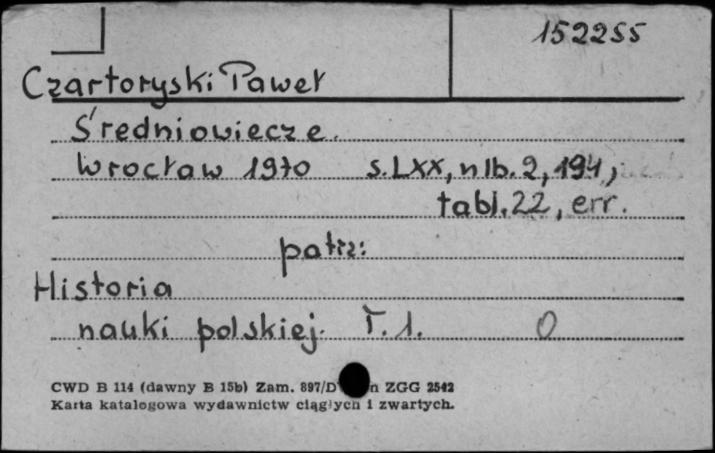 152255
Czartoryski Paweł
Średniowiecze.
Wrocław 1970 s. LXX, nlb. 2, 194,
tabl. 22, err.
patrz:
Historia
nauki polskiej. T. 1. 0
CWD B 114 (dawny B 15b) Zam. 897/D n ZGG 2542
Karta katalogowa wydawnictw ciągłych i zwartych.